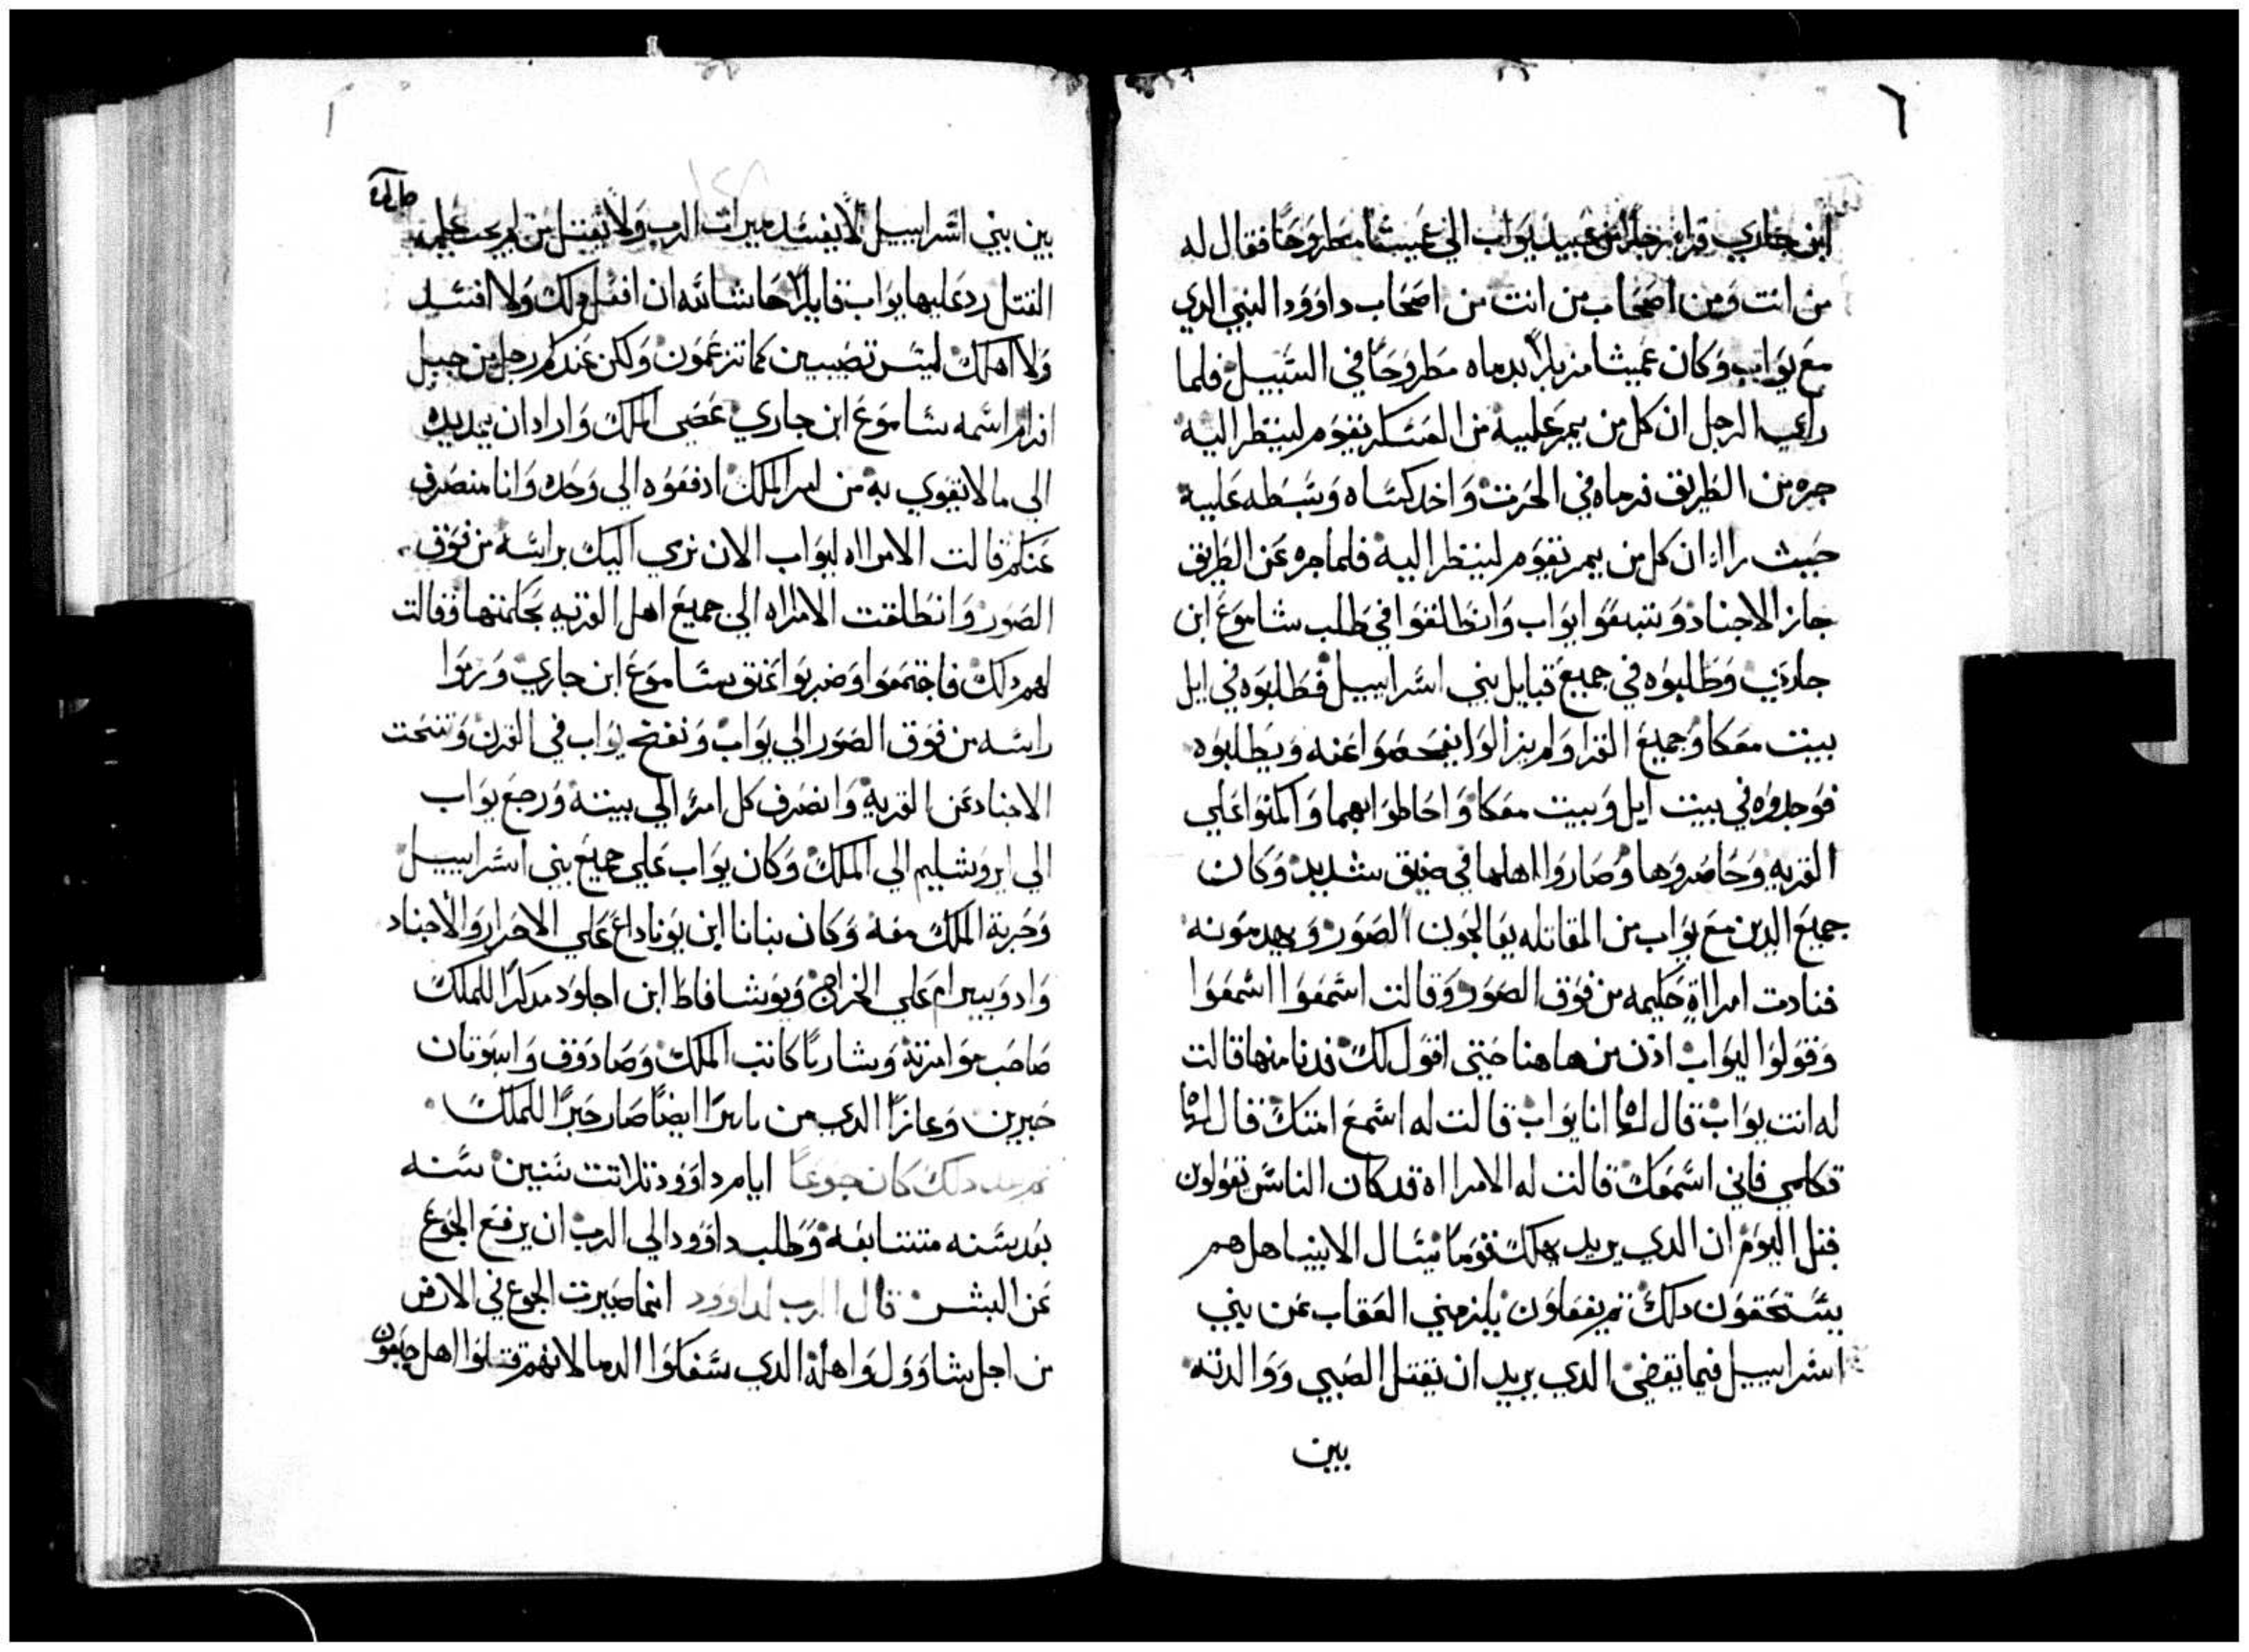 ٦
ابن جاري فراه رجلا من عبيد يواب الي عميشا مطروحا فقال له
من انت ومن اصحاب من انت من اصحاب داوود النبي الدي
مع يواب وكان عميشا مزبلا بدماه مطروحا في السبيل فلما
راي الرجل ان كل من يمر عليه من العسكر يقوم لينظر اليه
جره من الطريق فرماه في الحرث واخد كساه وبسطه عليه
حيث راا ان كل من يمر يقوم لينظر اليه فلما جره عن الطريق
جاز الاجناد وتبعوا يواب وانطلقوا في طلب ساموع ابن
جاري وطلبوه في جميع قبايل بني اسراييل فطلبوه في ابل
بيت معكا وجميع القرا ولم يزالوا يفحصوا عنه ويطلبوه
فوجدوه في بيت ابل وبيت معكا واحاطوا بهما واكمنوا علي
القريه وحاصروها وصاروا اهلها في ضيق شديد وكان
جميع الدين مع يواب من المقاتله يعالجون الصور ويهدمونه
فنادت امراة حكيمه من فوق الصور وقالت اسمعوا اسمعوا
وقولوا ليواب ادن من هاهنا حتي اقول لك فدنا منها قالت
له انت يواب قال لها انا يواب قالت له اسمع امتك قال لها
تكلمي فاني اسمعك قالت له الامرااه قد كان الناس تقولون
قبل اليوم ان الدي يريد يهلك قوما يسال الانبيا هل هم
يستحقون دلك تم يفعلون يلزمني العقاب عن بني
اسراييل فيما تقضي الدي يريد ان تقتل الصبي ووالدته
بين
بين بني اسراييل لا يفسد ميرات الرب ولا تقتل من لم يجب عليه
القتل رد عليها يواب قايلا حاشا لله ان افعل دلك ولا افسد
ولا اهلك ليس تصيبين كما تزعمون ولكن عندكم رجل من جبل
افرام اسمه ساموع ابن جاري عصي الملك واراد ان يمد يده
الي ما لا يقوي به من امر الملك ادفعوه الي وحده وانا منصرف
عنكم قالت الامرااه ليواب الان نرمي اليك براسه من فوق
الصور وانطلقت الامرااه الي جميع اهل القريه بحكمتها فقالت
لهم دلك فاجتمعوا وضربوا عنق ساموع ابن جاري ورموا
راسه من فوق الصور الي يواب ونفخ يواب في القرن وتنحت
الاجناد عن القرية وانصرف كل امرا الي بيته ورجع يواب
الي ايروشليم الي الملك وكان يواب علي جميع بني اسراييل
وحربة الملك معه وكان بنانا ابن يوناداع علي الاحرار والاجناد
وادونيرام علي الخراج ويوشافاط ابن اجلود مدكرا للملك
صاحب موامرته وشاريا كاتب الملك وصادوق وابيوتان
حبرين وعازا الدي من ياسرا ايضا صار حبرا للملك
تم بعد دلك كان جوعا ايام داوود تلاتت سنين سنه
بعد سنه متتابعه وطلب داوود الي الرب ان يرفع الجوع
عن البشر قال الرب لداوود انما صيرت الجوع في الارض
من اجل شاوول واهله الدي سفكوا الدما لانهم قتلوا اهل جبعون